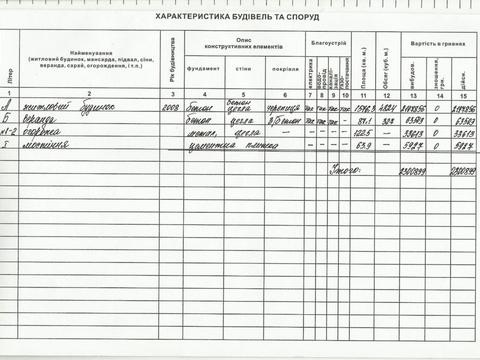 ХАРАКТЕРИСТИКА БУДІВЕЛЬ ТА СПОРУД
Літер
Найменування
(житловий будинок, мансарда, підвал, сіни,
веранда, сарай, огородження, і т.п.)
Рік будівництва
Опис
конструктивних елементів
фундамент
стіни
покрівля
Благоустрій
електрика
водо-
провід
каналі-
зація
газо-
постачання
Площа (кв. м.)
Обсяг (куб. м.)
Вартість в гривнях
вибудов.
зношення,
грн.
дійсн.
1 2 3 4 5 6 7 8 9 10 11 12 13 14 15
А житловий будинок 2008 бетон бетон цегла черепиця так так так так 0
Б веранда бетон цегла з/бетон так так так - 87.1 302 63503 0 63503
№1-2 огорожа метал, цегла — — — — — 122.5 — 33613 0 33613
I мостіння цементна плитка — — — — 63.9 — 5927 0 5927
Ітого: 2300899 2300899